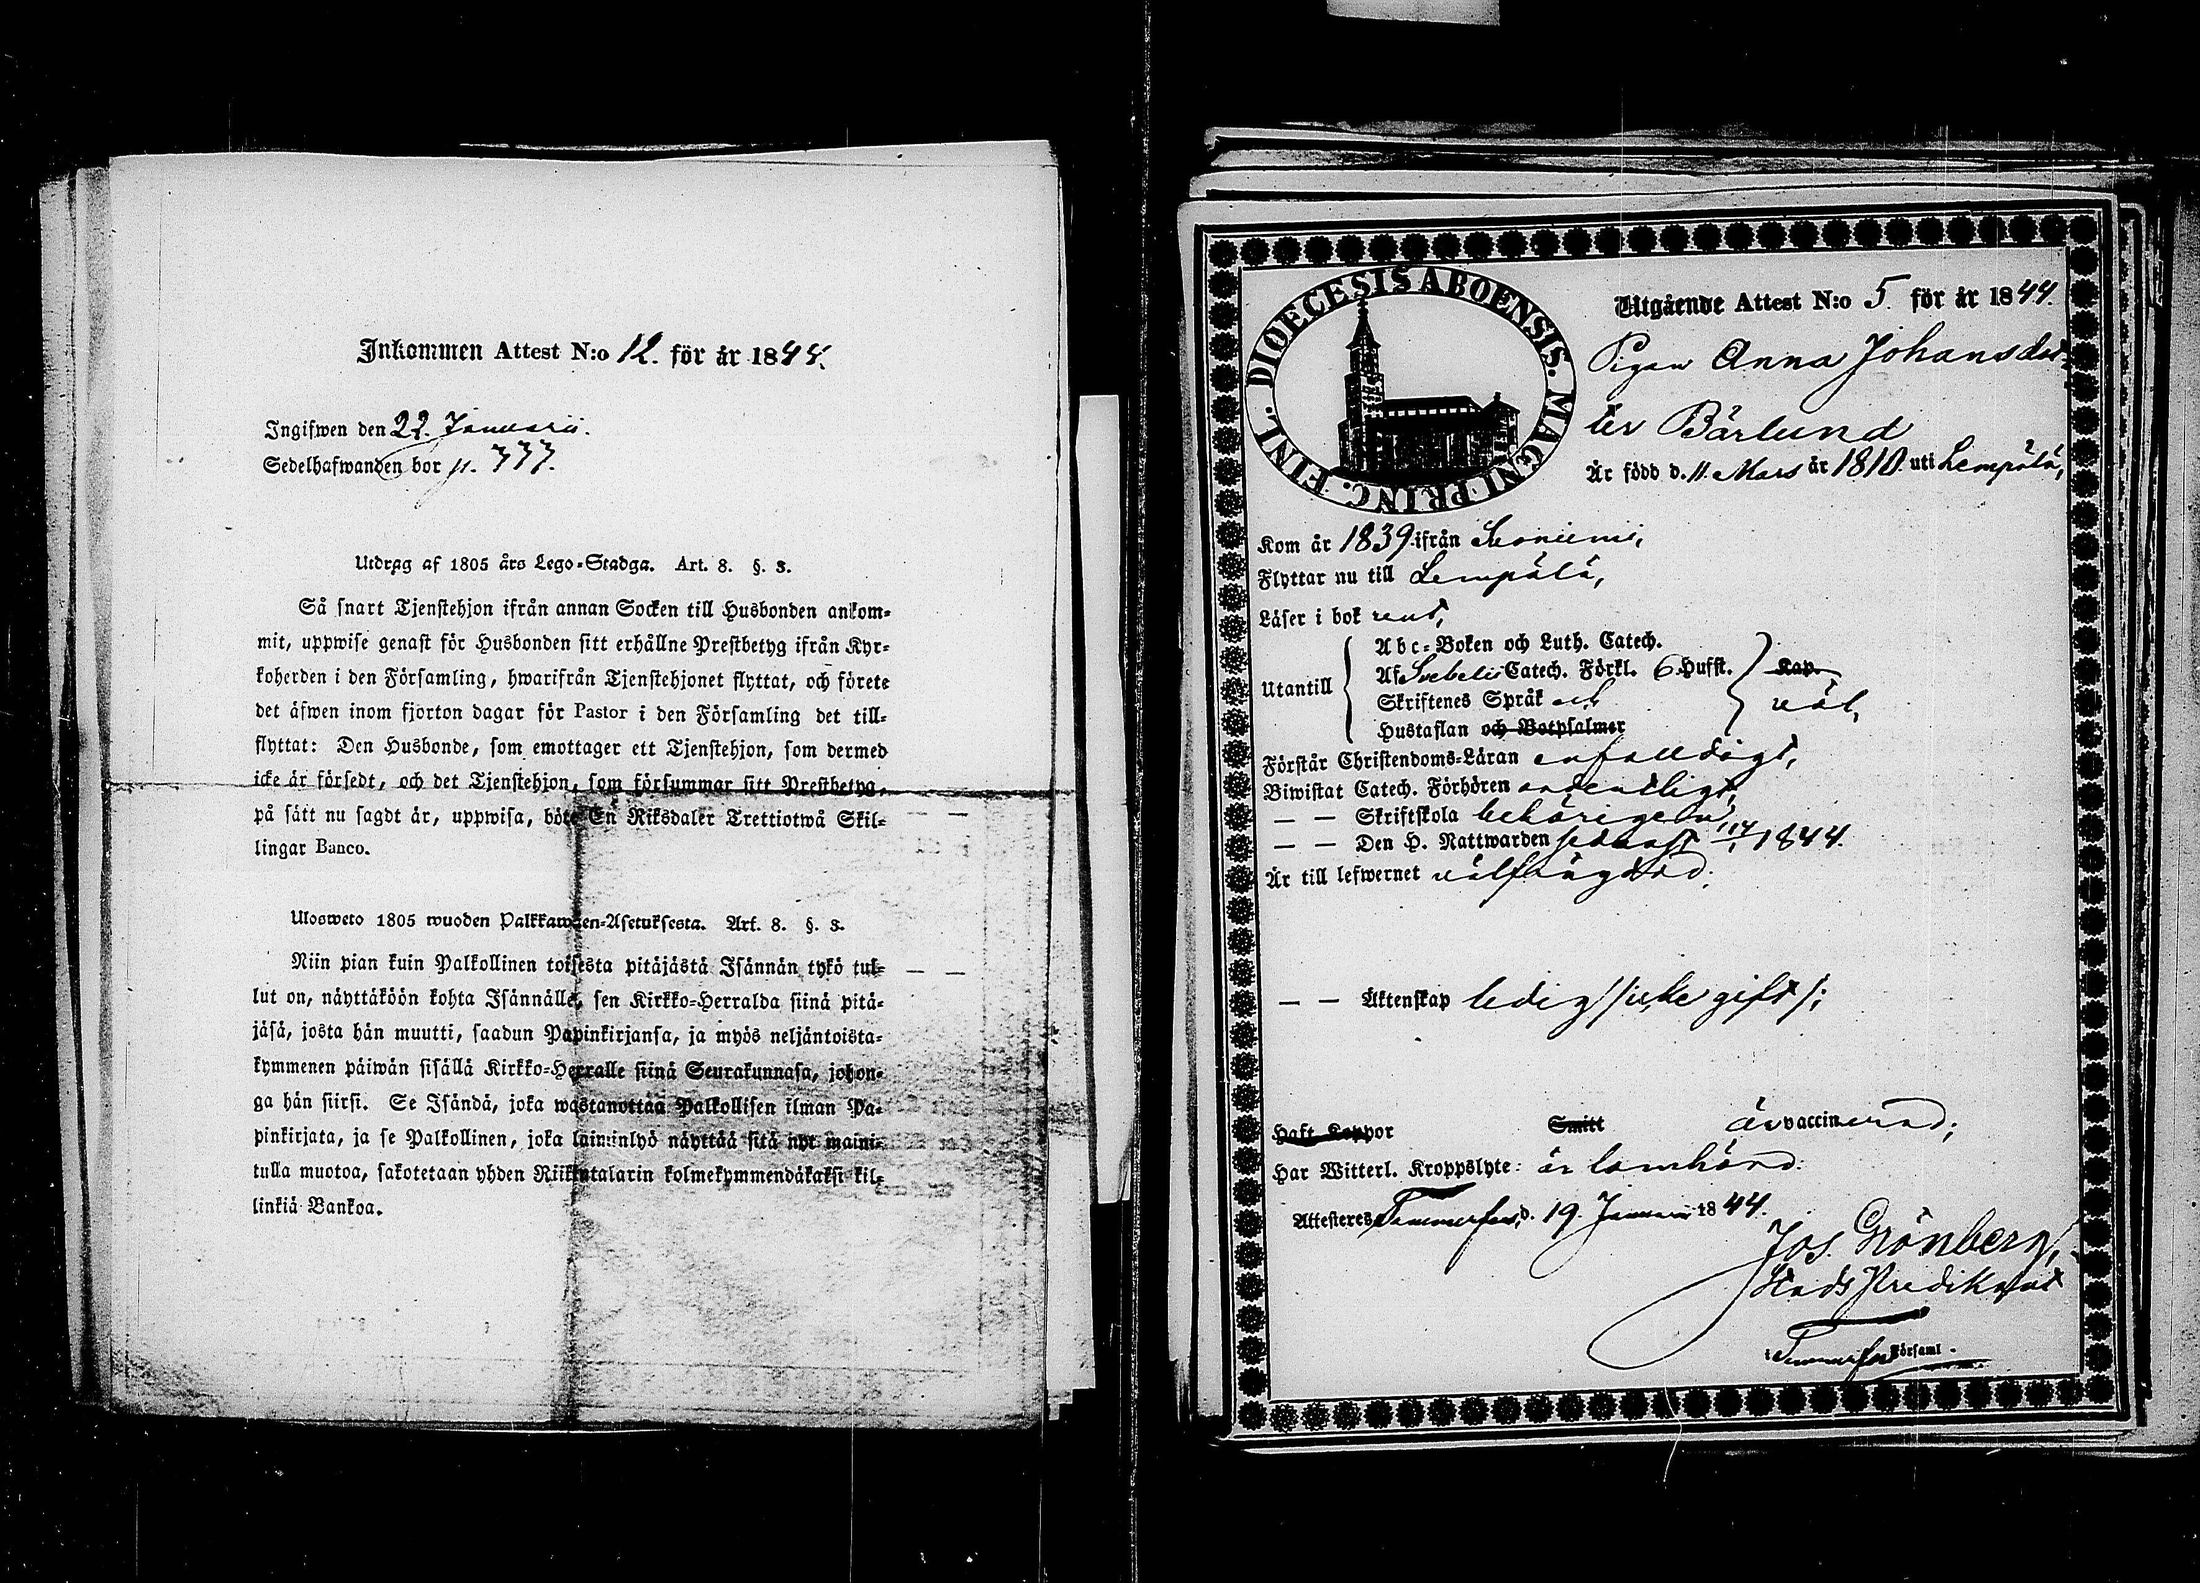 Inkommen Attest N:o 12. för år 1844.
Ingifwen den 22. Januarii.
Sedelhafwanden bor p. 777.
Utdrag af 1805 års Lego-Stadga. Art. 8. §. 3.
Så snart Tjenstehjon ifrån annan Socken till Husbonden ankom-
mit, uppwise genast för Husbonden sitt erhållne Prestbetyg ifrån Kyr-
koherden i den Församling, hwarifrån Tjenstehjonet flyttat, och förete
det äfwen inom fjorton dagar för Pastor i den Församling det till-
flyttat: Den Husbonde, som emottager ett Tjenstehjon, som dermed
icke är försedt, och det Tjenstehjon, som försummar sitt Prestbetyg,
på sätt nu sagdt är, uppwisa, böte En Riksdaler Trettiotwå Skil-
lingar Banco.
Ulosweto 1805 wuoden Palkkawäen-Asetuksesta. Art. 8. §. 3.
Niin pian kuin Palkollinen toisesta pitäjästä Isännän tykö tul-
lut on, näyttäköön kohta Isännälle, sen Kirkko-Herralda siinä pitä-
jäsä, josta hän muutti, saadun Papinkirjansa, ja myös neljäntoista-
kymmenen päiwän sisällä Kirkko-Herralle siinä Seurakunnasa, johon-
ga hän siirsi. Se Isändä, joka wastanottaa Palkollisen ilman Pa-
pinkirjata, ja se Palkollinen, joka laiminlyö näyttää sitä nyt maini-
tulla muotoa, sakotetaan yhden Riikintalarin kolmekymmendäkaksi kil-
linkiä Bankoa.
DIOECESIS ABOENSIS. MAGNI PRINC. FINL.
Utgående Attest N:o 5. för år 1844.
Pigan Anna Johansdot-
ter Bärlund
Är född d. 11. Mars år 1810. uti Lempälä,
Kom år 1839. ifrån
Flyttar nu till Lempälä,
Läser i bok rent,
Utantill
Abc-Boken och Luth. Catech.
Af Svebelii Catech. Förkl. 6 Hufst. Kap.
Skriftenes Språk och
väl,
Hustaflan och Botpsalmer
Förstår Christendoms-Läran enfalldigt,
Biwistat Catech. Förhören ordentligt,
— — Skriftskola behörigen,
— — Den H. Nattwarden sednast 1844.
Är till lefwernet välfrägdad.
— — Äktenskap ledig /:icke gift:/;
Haft Koppor Smitt är vaccinerad;
Har Witterl. Kroppslyte: är lomhörd.
Attesteres Tammerfors, d. 19. Januarii 1844.
Jos. Grönberg,
Stads Predikant
i Tammerfors Församl.